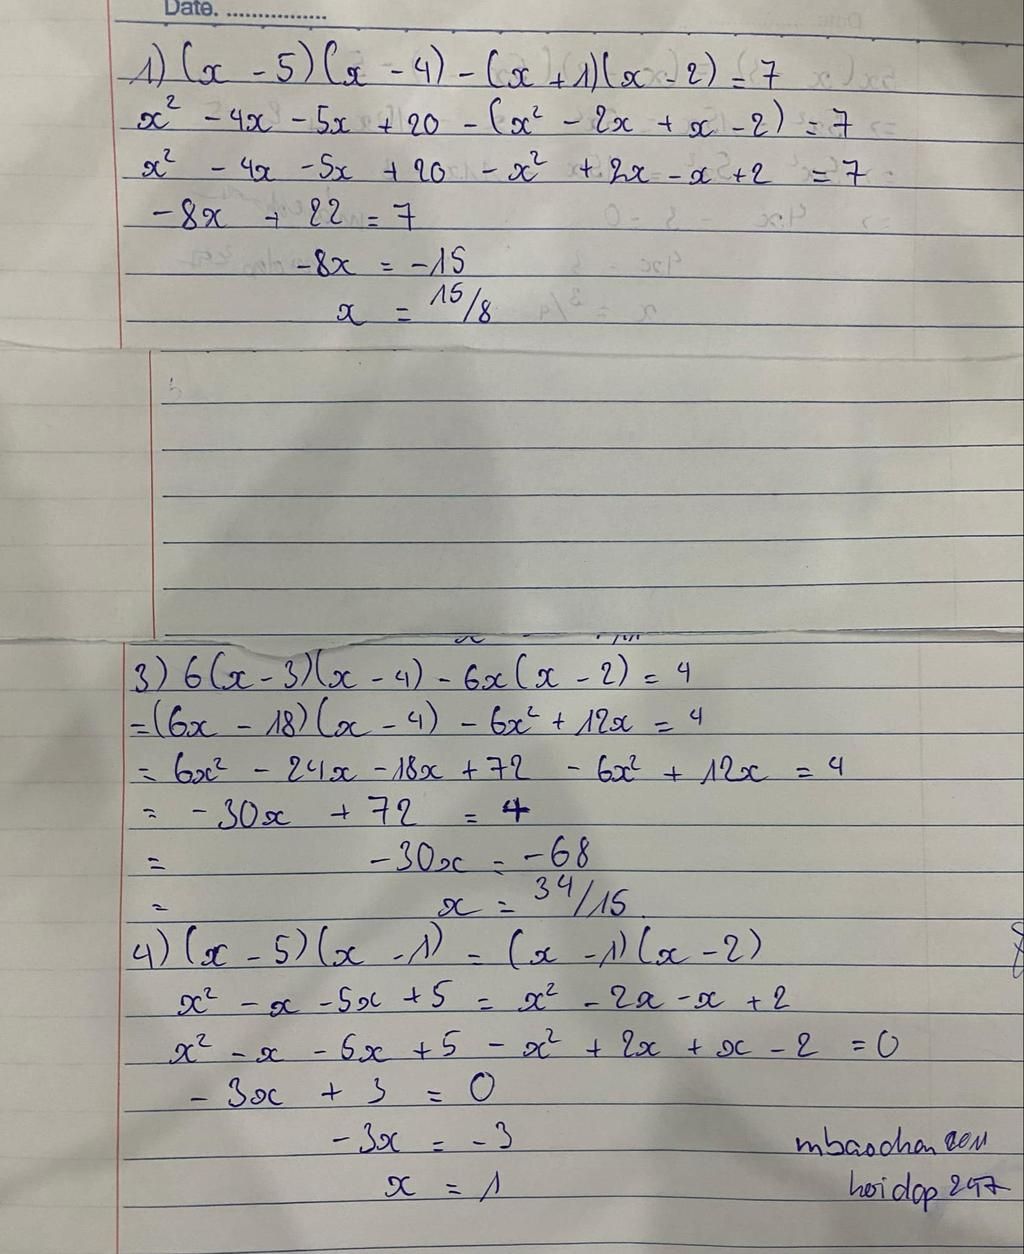 Date. ...............
1) (x - 5)(x - 4) - (x + 1)(x - 2) = 7
x² - 4x - 5x + 20 - (x² - 2x + x - 2) = 7
x² - 4x - 5x + 20 - x² + 2x - x + 2 = 7
-8x + 22 = 7
-8x = -15
x = 15/8
3) 6(x - 3)(x - 4) - 6x(x - 2) = 4
= (6x - 18)(x - 4) - 6x² + 12x = 4
= 6x² - 24x - 18x + 72 - 6x² + 12x = 4
= -30x + 72 = 4
= -30x = -68
= x = 34/15
4) (x - 5)(x - 1) = (x - 1)(x - 2)
x² - x - 5x + 5 = x² - 2x - x + 2
x² - x - 5x + 5 - x² + 2x + x - 2 = 0
-3x + 3 = 0
-3x = -3
x = 1
hoidap 247